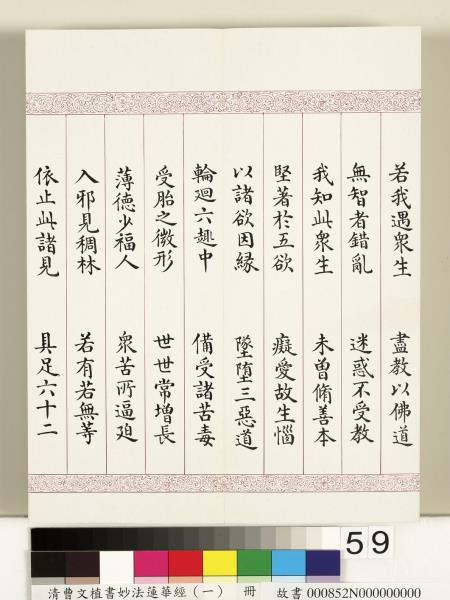 若我遇衆生　盡教以佛道
無智者錯亂　迷惑不受教
我知此衆生　未曾脩善本
堅著於五欲　癡愛故生惱
以諸欲因緣　墜墮三惡道
輪迴六趣中　備受諸苦毒
受胎之微形　世世常增長
薄德少福人　衆苦所逼迫
入邪見稠林　若有若無等
依止此諸見　具足六十二
59
清曹文植書妙法蓮華經（一）　冊　故書 000852N000000000